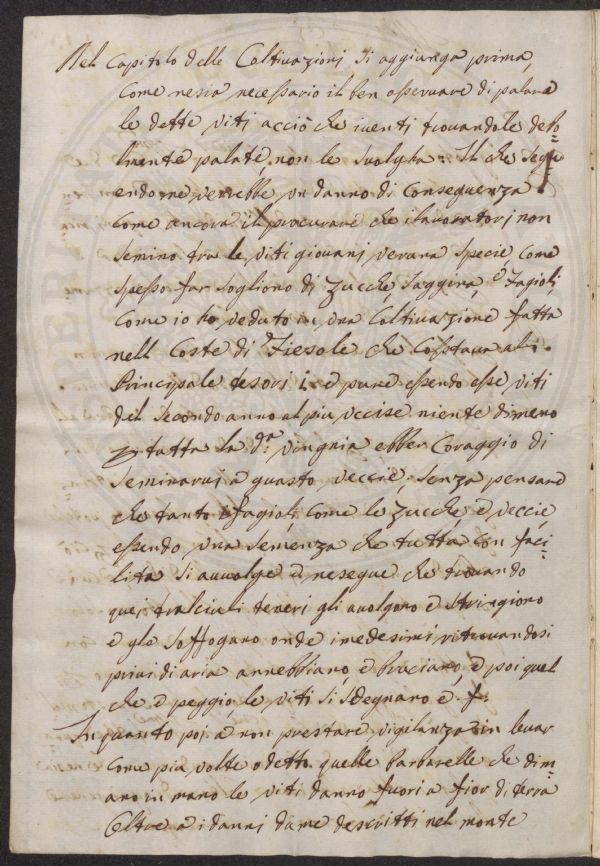 Nel Capitolo delle Coltivazioni si aggiunga prima,
Come nesia necessario il ben osservare di palare
le dette viti acciò che iventi trovandole debo=
lmente palate, non le svolgha: Il che segu
endo ne verrebbe un danno di Conseguenza
Come ancora il procurare che ilavoratori non
semino tra le viti giovani veruna specie, come
spesso far sogliono di Zucche, saggina, ò fagioli,
Come io ho veduto in una Coltivazione fatta
nell Coste di Fiesole che Costava al
Principale tesori i: e pure essendo esse viti
del secondo anno al piu uccise niente dimeno
tutta la d.a vingnia ebber Coraggio di
seminarvi à guasto veccie, senza pensare
che tanto i fagioli, come le zucche, è veccie,
essendo una semenza che tutta con faci=
lita si avvolge è nesegue che trovando
quei tralciuli teneri gli avolgano è stringiono
è gle soffogano onde imedesimi ritrovandosi
privi di aria annebbiano è bruciano, è poi quel
che è peggio, le viti si sdegnano è
In quanto poi à non prestare vigilanza in levar
Come piu volte ò detto quelle barbarelle che dim=
ano in mano le viti danno fuori a fior di terra
Oltre à i danni dame descritti nel monte